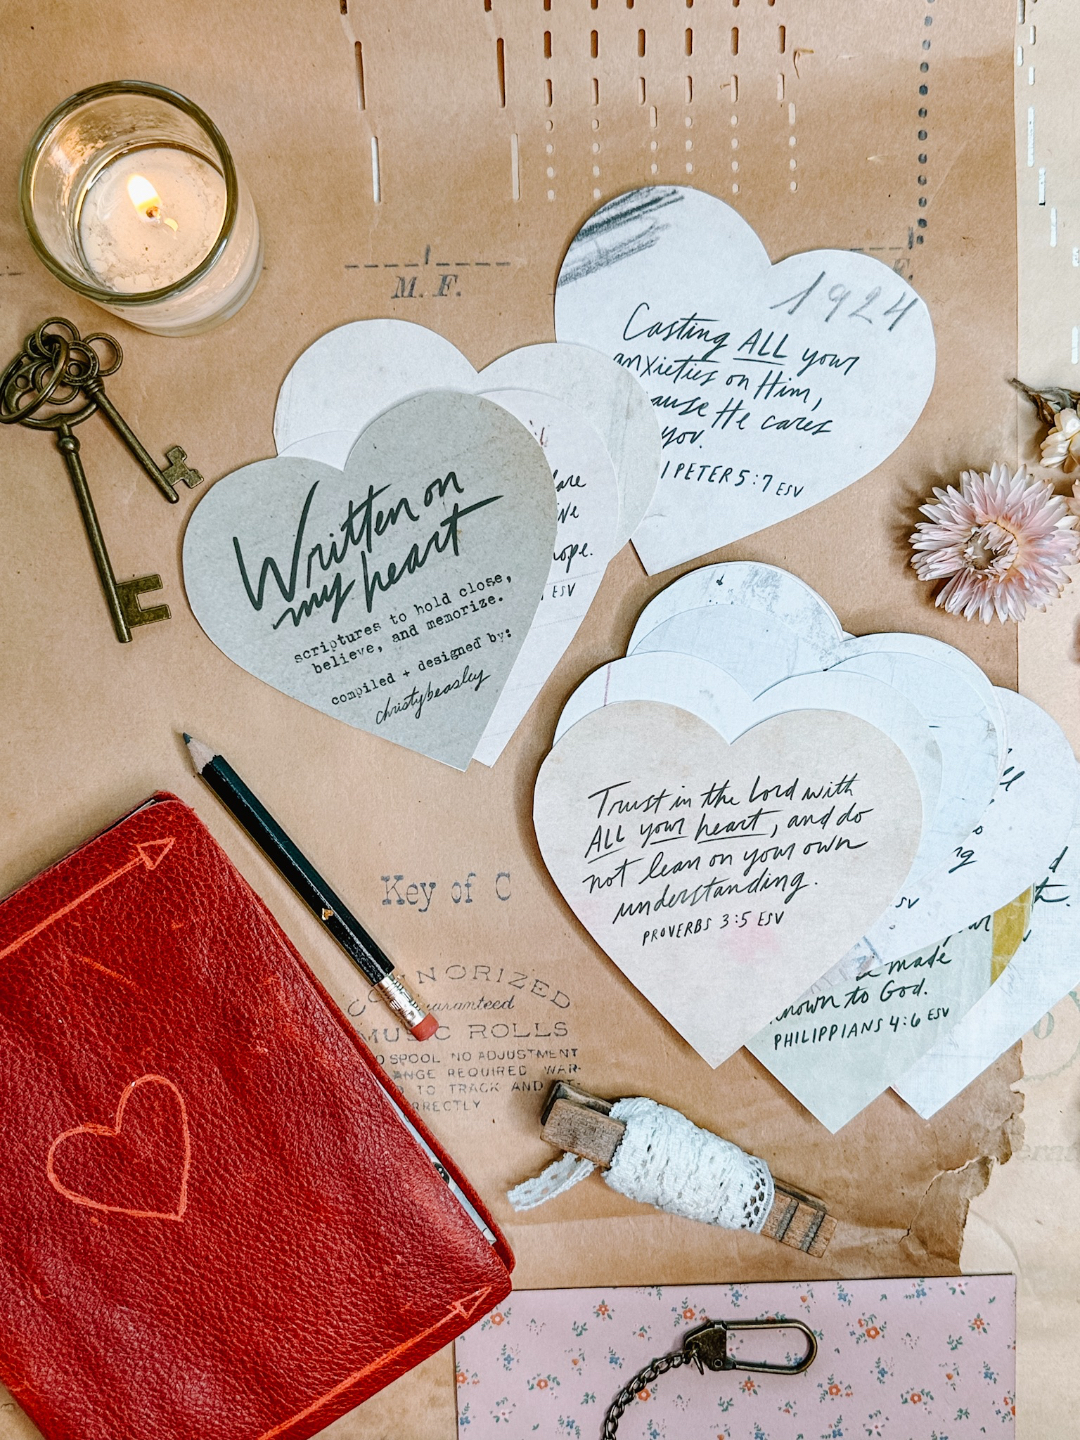 M. F.
1924
Casting ALL your
anxieties on Him,
He cares
you.
1 PETER 5:7 ESV
Written on
my heart
scriptures to hold close,
believe, and memorize.
compiled + designed by:
christybeasley
ESV
Trust in the Lord with
ALL your heart, and do
not lean on your own
understanding.
PROVERBS 3:5 ESV
made
known to God.
PHILIPPIANS 4:6 ESV
Key of C
MUSIC ROLLS
NO ADJUSTMENT
REQUIRED
TO TRACK AND